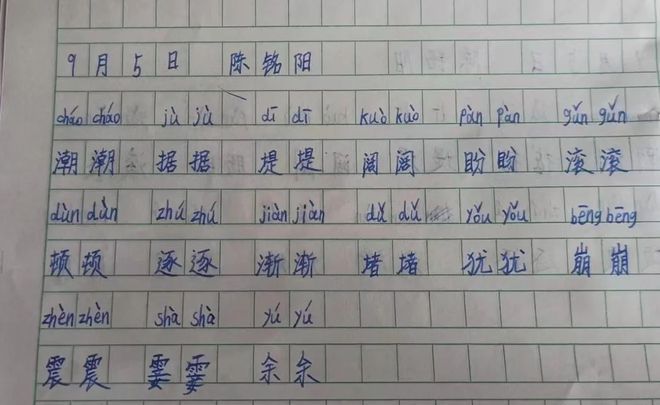 9月5日 陈铭阳
cháo cháo jù jù dī dī kuò kuò pàn pàn gǔn gǔn
潮潮 据据 堤堤 阔阔 盼盼 滚滚
dùn dùn zhú zhú jiàn jiàn dǔ dǔ yǒu yǒu bēng bēng
顿顿 逐逐 渐渐 堵堵 犹犹 崩崩
zhèn zhèn shà shà yú yú
震震 霎霎 余余